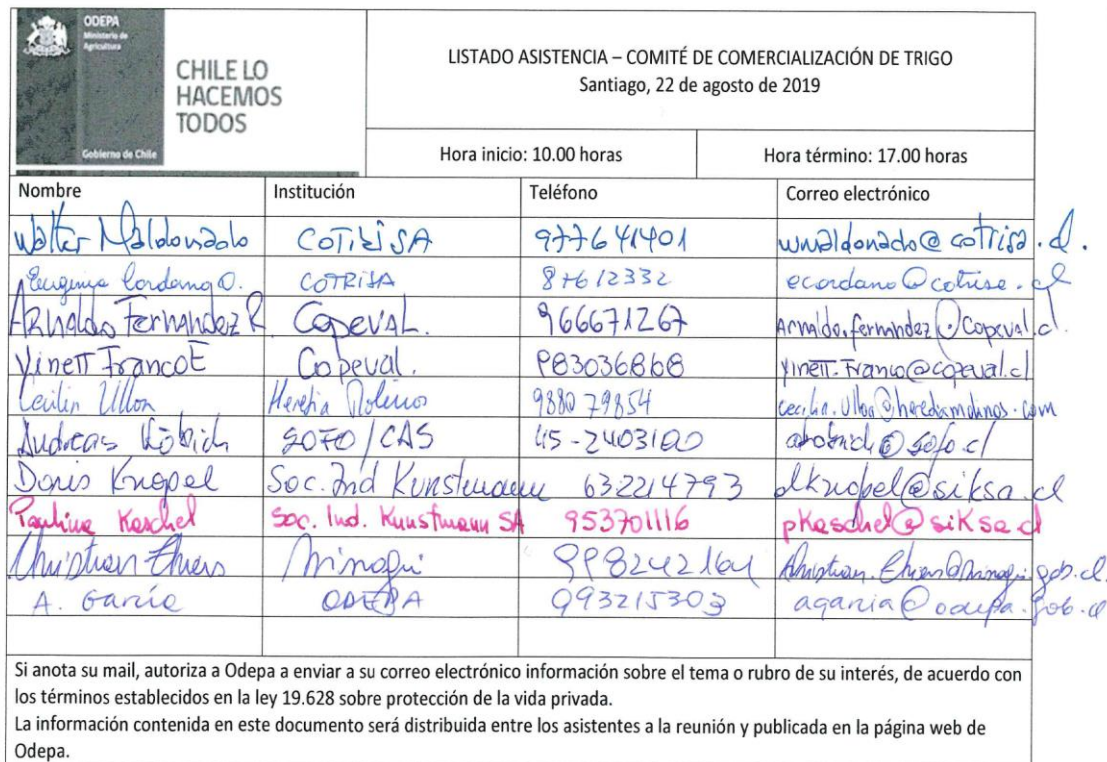 ODEPA
Ministerio de
Agricultura
CHILE LO
HACEMOS
TODOS
Gobierno de Chile
LISTADO ASISTENCIA – COMITÉ DE COMERCIALIZACIÓN DE TRIGO
Santiago, 22 de agosto de 2019
Hora inicio: 10.00 horas Hora término: 17.00 horas
Nombre Institución Teléfono Correo electrónico
Walter Maldonado COTRISA 977641401 wmaldonado@cotrisa.cl.
COTRISA 87612332
Arnaldo Fernandez R Copeval. 966671267 Arnaldo.fernandez@Copeval.cl.
Yinett Franco E Copeval. 983036868 Yinett.Franco@copeval.cl
988079854
Andreas Köbrich SOFO/CAS 45-2403100
Doris Knopel Soc. Ind Kunstmann 632214793 dknopel@siksa.cl
Paulina Kaschel Soc. Ind. Kunstmann SA 953701116 pkaschel@siksa.cl
Christian Minagri
A. García ODEPA 993215303 agarcia@odepa.gob.cl
Si anota su mail, autoriza a Odepa a enviar a su correo electrónico información sobre el tema o rubro de su interés, de acuerdo con
los términos establecidos en la ley 19.628 sobre protección de la vida privada.
La información contenida en este documento será distribuida entre los asistentes a la reunión y publicada en la página web de
Odepa.